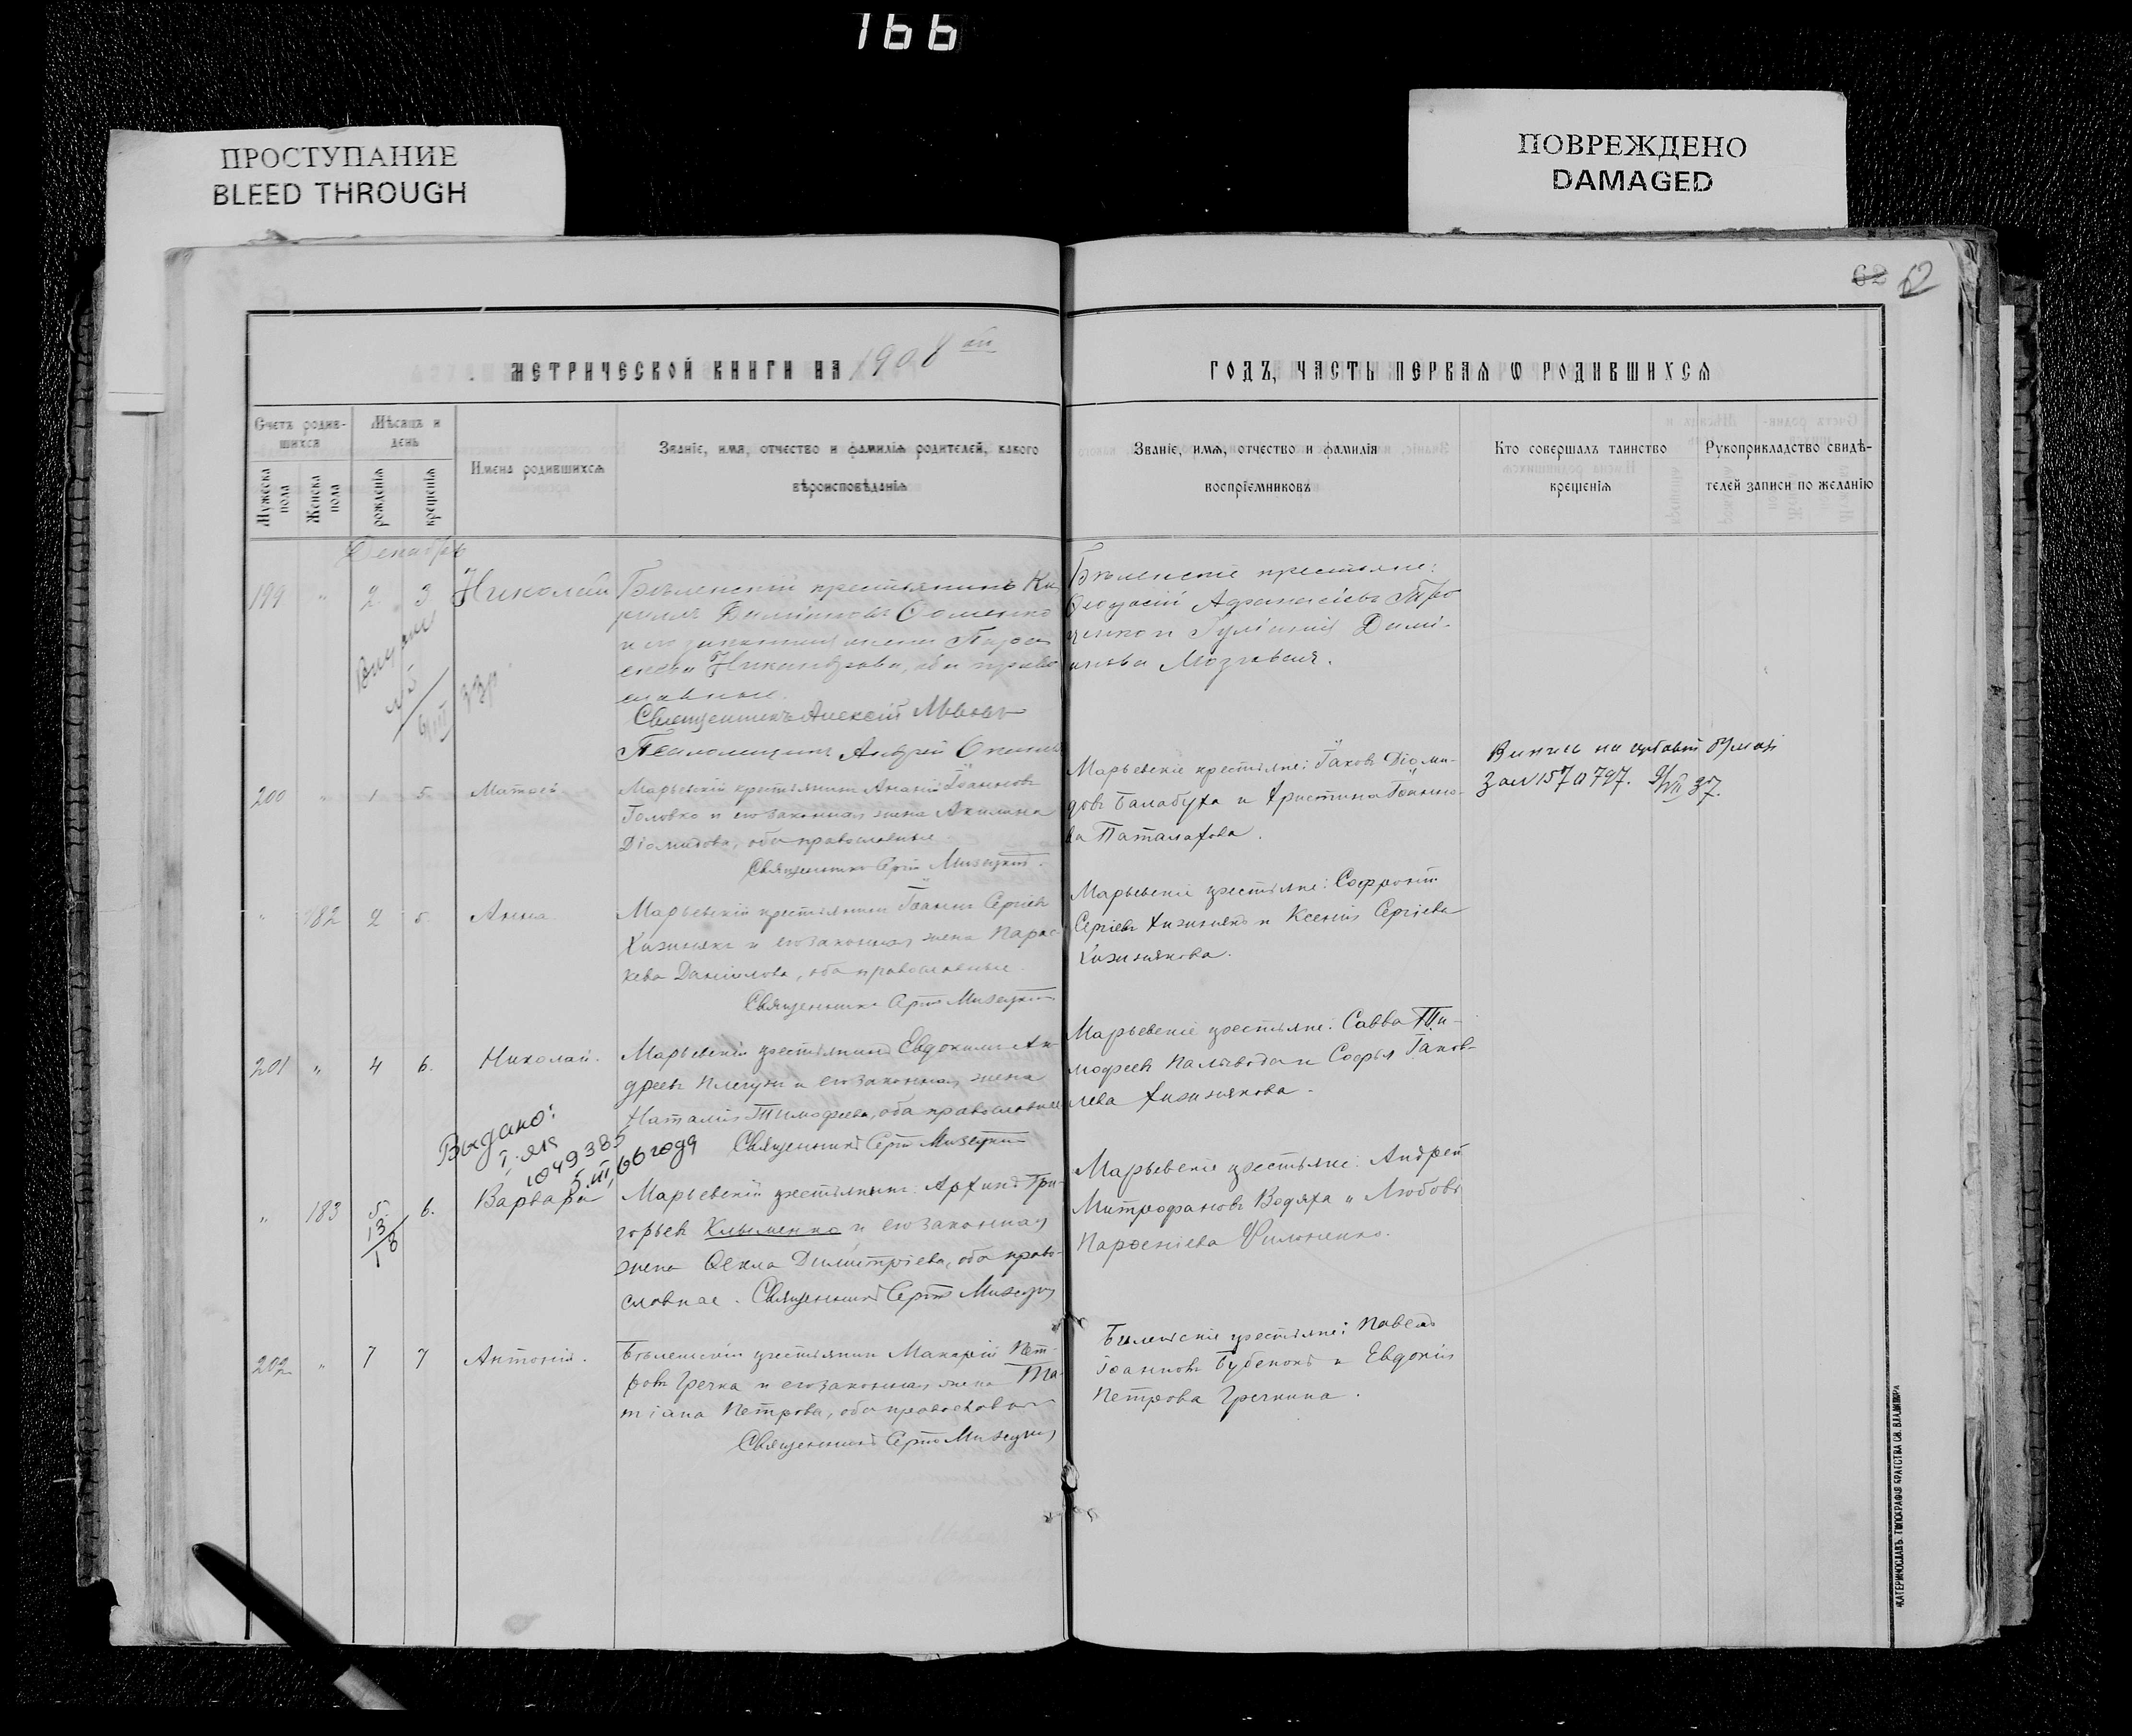 166
ПРОСТУПАНИЕ
BLEED THROUGH
ПОВРЕЖДЕНО
DAMAGED
62 62
МЕТРИЧЕСКОЙ КНИГИ НА 1908 ой
ГОДЪ, ЧАСТЬ ПЕРВАЯ Ѡ РОДИВШИХСЯ
Счетъ родив-
шихся
Мужеска пола
Женска пола
Мѣсяцъ и
день
рожденія
крещенія
Имена родившихся
Званіе, имя, отчество и фамилія родителей, какого
вѣроисповѣданія
Званіе, имя, отчество и фамилія
воспріемниковъ
Кто совершалъ таинство
крещенія
Рукоприкладство свидѣ-
телей записи по желанію
Декабрь
199 " 2 3 Николай
Бѣленскій крестьянинъ Ки-
риллъ
и его законная жена Парас-
кева Никандрова, оба право-
славные.
Священникъ Алексій
Псаломщикъ Андрей
Бѣленскіе крестьяне:
Ѳеодосій Афанасіевъ Тро
ценко и
200 " 1 5. Матѳей
Марьевскій крестьянинъ Ананій Іоанновъ
Головко и его законная жена Акилина
Діомидова, оба православные
Священникъ Сергій Мизецкій.
Марьевскіе крестьяне: Іаковъ Діоми-
довъ Балабуха и Христина Іоанно-
ва Паталахова.
Випись на гербовій бумазі
за № 1570797. 37.
" 182 2 5. Анна
Марьевскій крестьянинъ Іоаннъ Сергіевъ
Хижнякъ и его законная жена Парас-
кева Даніилова, оба православные.
Священникъ Сергій Мизецкій
Марьевскіе крестьяне: Софроній
Сергіевъ Хижнякъ и Ксенія Сергіева
Хижнякова.
201 " 4 6. Николай.
Марьевскій крестьянинъ Евдокимъ Ан-
дреевъ Плегузъ и его законная жена
Наталія Тимофеева, оба православные
Священникъ Сергій Мизецкій
Марьевскіе крестьяне: Савва Ти-
мофеевъ Паливода и Софья Іаков-
лева Хижнякова.
Выдано:
I-ЯК
1049385
5.III.66 года
" 183 5. 6. Варвара
13/18
Марьевскій крестьянинъ Архипъ Гри-
горьевъ Клыменко и его законная
жена Ѳекла Димитріева, оба право-
славные. Священникъ Сергій Мизецкій
Марьевскіе крестьяне: Андрей
Митрофановъ Водяха и Любовь
Парѳеніева Филоненко.
202 " 7 7 Антоній.
Бѣленскій крестьянинъ Макарій Пет-
ровъ Гречка и его законная жена Та-
тіана Петрова, оба православные
Священникъ Сергій Мизецкій
Бѣленскіе крестьяне: Павелъ
Іоанновъ Бубенокъ и Евдокія
Петрова Гречкина.
ЕКАТЕРИНОСЛАВЪ. ТИПОГРАФІЯ БРАТСТВА СВ. ВЛАДИМІРА